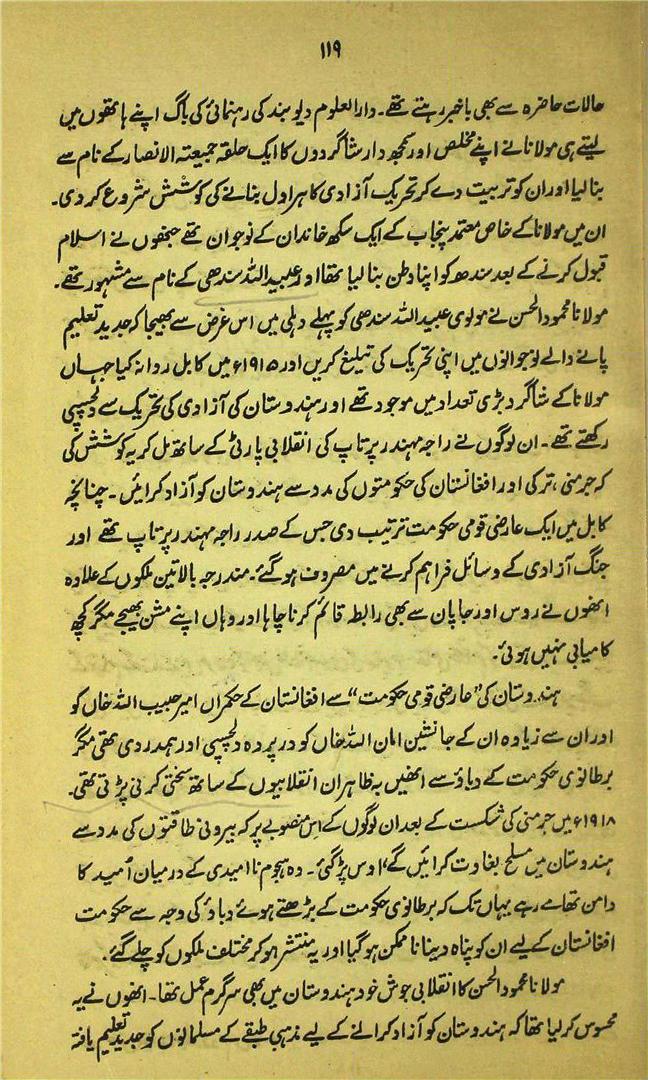 ۱۱۹
حالات حاضرہ سے بھی باخبر رہتے تھے۔ دارالعلوم دیوبند کی رہنمائی کی باگ اپنے ہاتھوں میں
لیتے ہی مولانا نے اپنے مخلص اور سمجھ دار شاگردوں کا ایک حلقہ جمیعتہ الانصار کے نام سے
بنا لیا اور ان کو تربیت دے کر تحریک آزادی کا ہراول بنانے کی کوشش شروع کر دی۔
ان میں مولانا کے خاص معتمد پنجاب کے ایک سکھ خاندان کے نوجوان تھے جنھوں نے اسلام
قبول کرنے کے بعد سندھ کو اپنا وطن بنا لیا تھا اور عبید اللہ سندھی کے نام سے مشہور تھے۔
مولانا محمود الحسن نے مولوی عبید اللہ سندھی کو پہلے دہلی میں اس غرض سے بھیجا کہ جدید تعلیم
پانے والے نوجوانوں میں اپنی تحریک کی تبلیغ کریں اور ۱۹۱۵ء میں کابل روانہ کیا جہاں
مولانا کے شاگرد بڑی تعداد میں موجود تھے اور ہندوستان کی آزادی کی تحریک سے دلچسپی
رکھتے تھے۔ ان لوگوں نے راجہ مہندر پرتاپ کی انقلابی پارٹی کے ساتھ مل کر یہ کوشش کی
کہ جرمنی، ترکی اور افغانستان کی حکومتوں کی مدد سے ہندوستان کو آزاد کرائیں۔ چنانچہ
کابل میں ایک عارضی قومی حکومت ترتیب دی جس کے صدر راجہ مہندر پرتاپ تھے اور
جنگ آزادی کے وسائل فراہم کرنے میں مصروف ہو گئے۔ مندرجہ بالا تین ملکوں کے علاوہ
انھوں نے روس اور جاپان سے بھی رابطہ قائم کرنا چاہا اور وہاں اپنے مشن بھیجے مگر کچھ
کامیابی نہیں ہوئی۔
ہندوستان کی "عارضی قومی حکومت" سے افغانستان کے حکمراں امیر حبیب اللہ خاں کو
اور ان سے زیادہ ان کے جانشین امان اللہ خاں کو در پردہ دلچسپی اور ہمدردی تھی مگر
برطانوی حکومت کے دباؤ سے انھیں بہ ظاہر ان انقلابیوں کے ساتھ سختی کرنی پڑتی تھی۔
۱۹۱۸ء میں جرمنی کی شکست کے بعد ان لوگوں کے اس منصوبے پر کہ بیرونی طاقتوں کی مدد سے
ہندوستان میں مسلح بغاوت کرائیں گے، اوس پڑ گئی۔ وہ ہجوم نا امیدی کے درمیان اُمید کا
دامن تھامے رہے یہاں تک کہ برطانوی حکومت کے بڑھتے ہوئے دباؤ کی وجہ سے حکومت
افغانستان کے لیے ان کو پناہ دینا ناممکن ہو گیا اور یہ منتشر ہو کر مختلف ملکوں کو چلے گئے۔
مولانا محمود الحسن کا انقلابی جوش خود ہندوستان میں بھی سرگرم عمل تھا۔ انھوں نے یہ
محسوس کر لیا تھا کہ ہندوستان کو آزاد کرانے کے لیے مذہبی طبقے کے مسلمانوں کو جدید تعلیم یافتہ